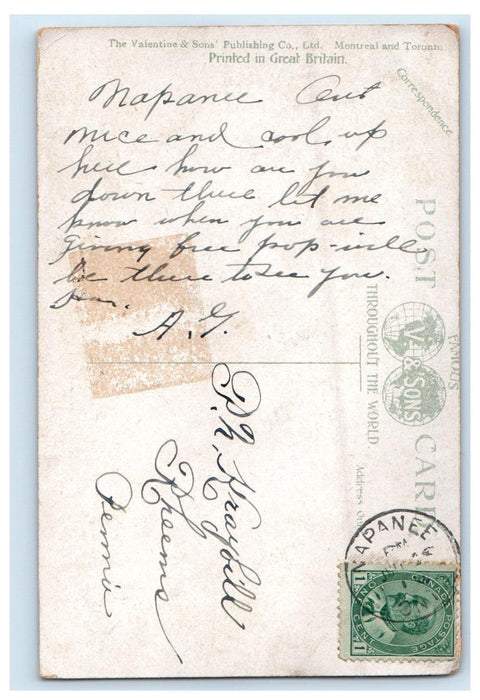 The Valentine & Sons' Publishing Co., Ltd. Montreal and Toronto
Printed in Great Britain.
Correspondence
Napanee Ont
nice and cool up
here how are you
down there let me
know when you are
giving free pop - will
be there to see you.
A.G.
POST CARD
FAMOUS
V. & SONS
THROUGHOUT THE WORLD
Address Only
P. N. Kraybill
Rheems
Penna
NAPANEE
CANADA POSTAGE
1 ONE CENT 1